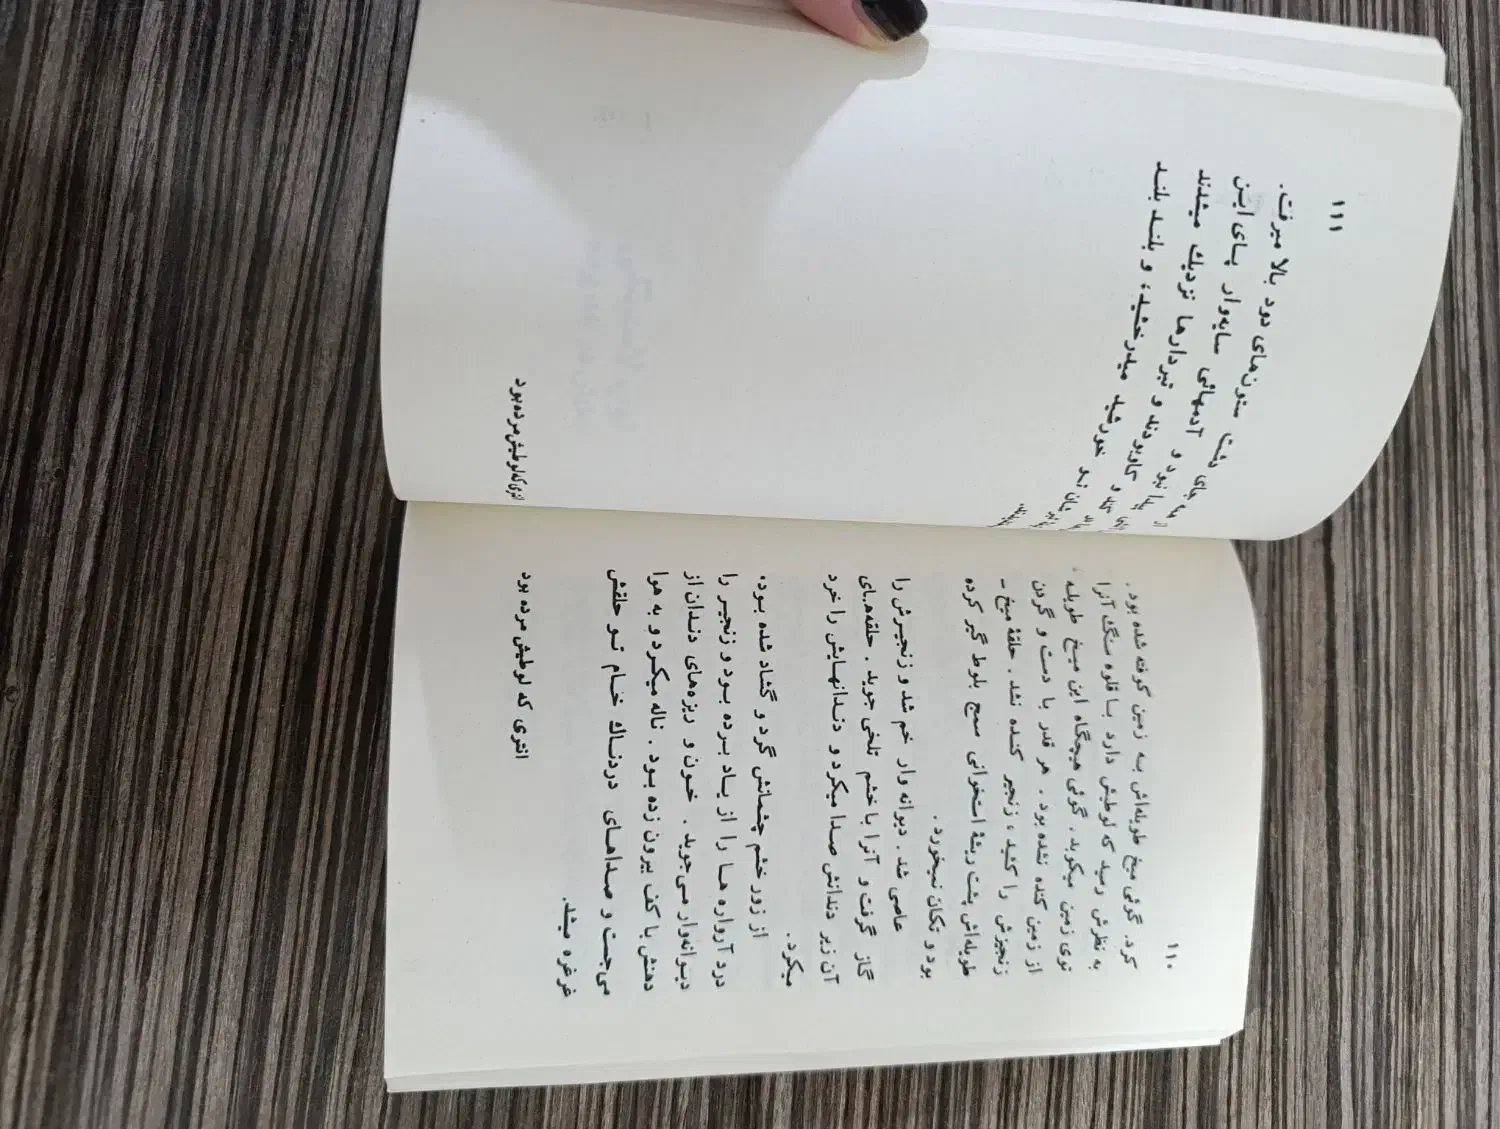 ۱۱۰
کرد. گوئی میخ طویله‌اش بـه زمین کوفته شده بود.
به نظرش رسید که لوطیش دارد بـا قلوه سنگ آنرا
توی زمین میکوبد. گوئی هیچگاه این میـخ طویلـه
از زمین کنده نشده بود. هر قدر با دست و گردن
زنجیرش را کشید، زنجیر کنـده نشد. حلقهٔ میخ ـ
طویله‌اش پشت ریشهٔ استخوانی سمج بلوط گیر کرده
بود و تکان نمیخورد.
عاصی شد. دیوانه وار خم شد و زنجیـرش را
گاز گرفت و آنرا با خشم تلخی جوید. حلقه‌هـای
آن زیر دندانش صدا میکرد و دنـدانهـایش را خرد
میکرد.
از زور خشم چشمانش گرد و گشاد شده بـود.
درد آرواره هـا را از یـاد بـرده بـود و زنجیـر را
دیـوانه‌وار مـی‌جوید. خـون و ریزه‌های دنـدان از
دهنش با کف بیرون زده بـود. ناله میکـرد و به هوا
می‌جست و صـداهـای دردنـاك خـام تـو حلقش
غرغره میشد.
انتری که لوطیش مرده بود
۱۱۱
از همه جای دشت ستون‌های دود بالا میرفت.
پیدا نبود و آدمهائی سایه‌وار پـای ایـن
کند و کاو بودند و تبردارها نزدیك میشدند
خورشید میدرخشید؛ و بلنـد بلنـد
انتری که لوطیش مرده بود